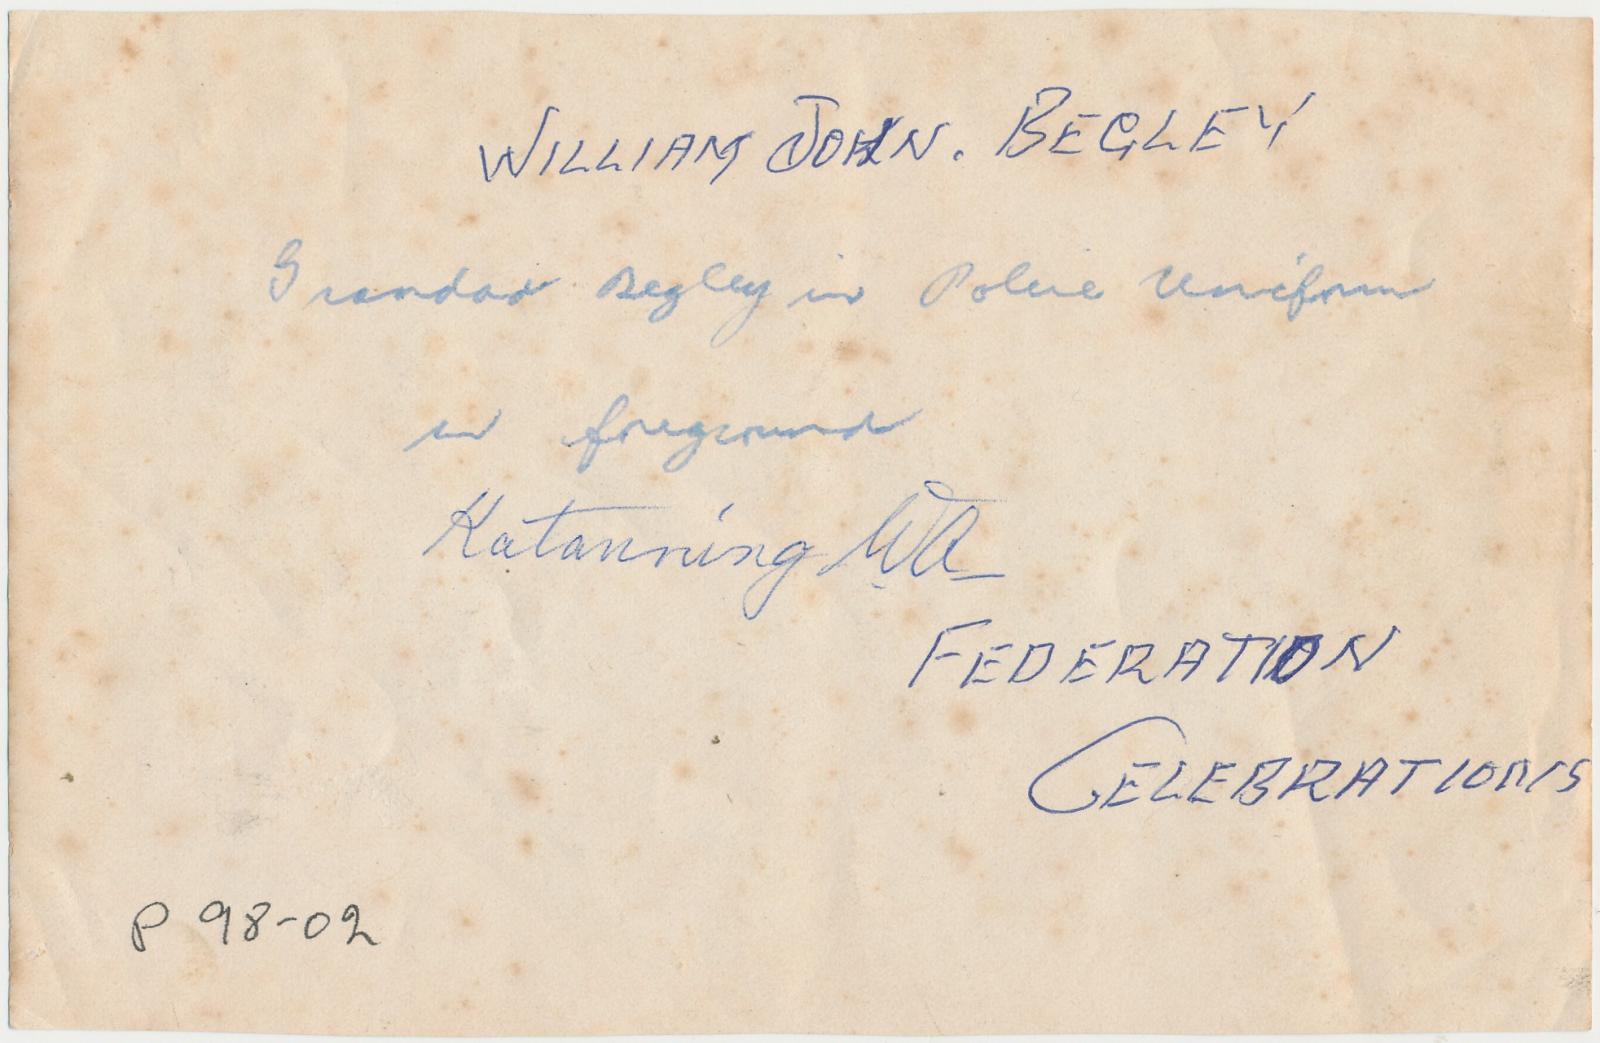 WILLIAM JOHN. BEGLEY
Grandad Begley in Police Uniform
in foreground
Katanning WA
FEDERATION
CELEBRATIONS
P 98-02